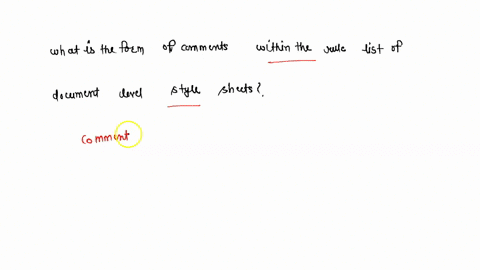 what is the form of comments within the rule list of
document level style sheets?.
comment